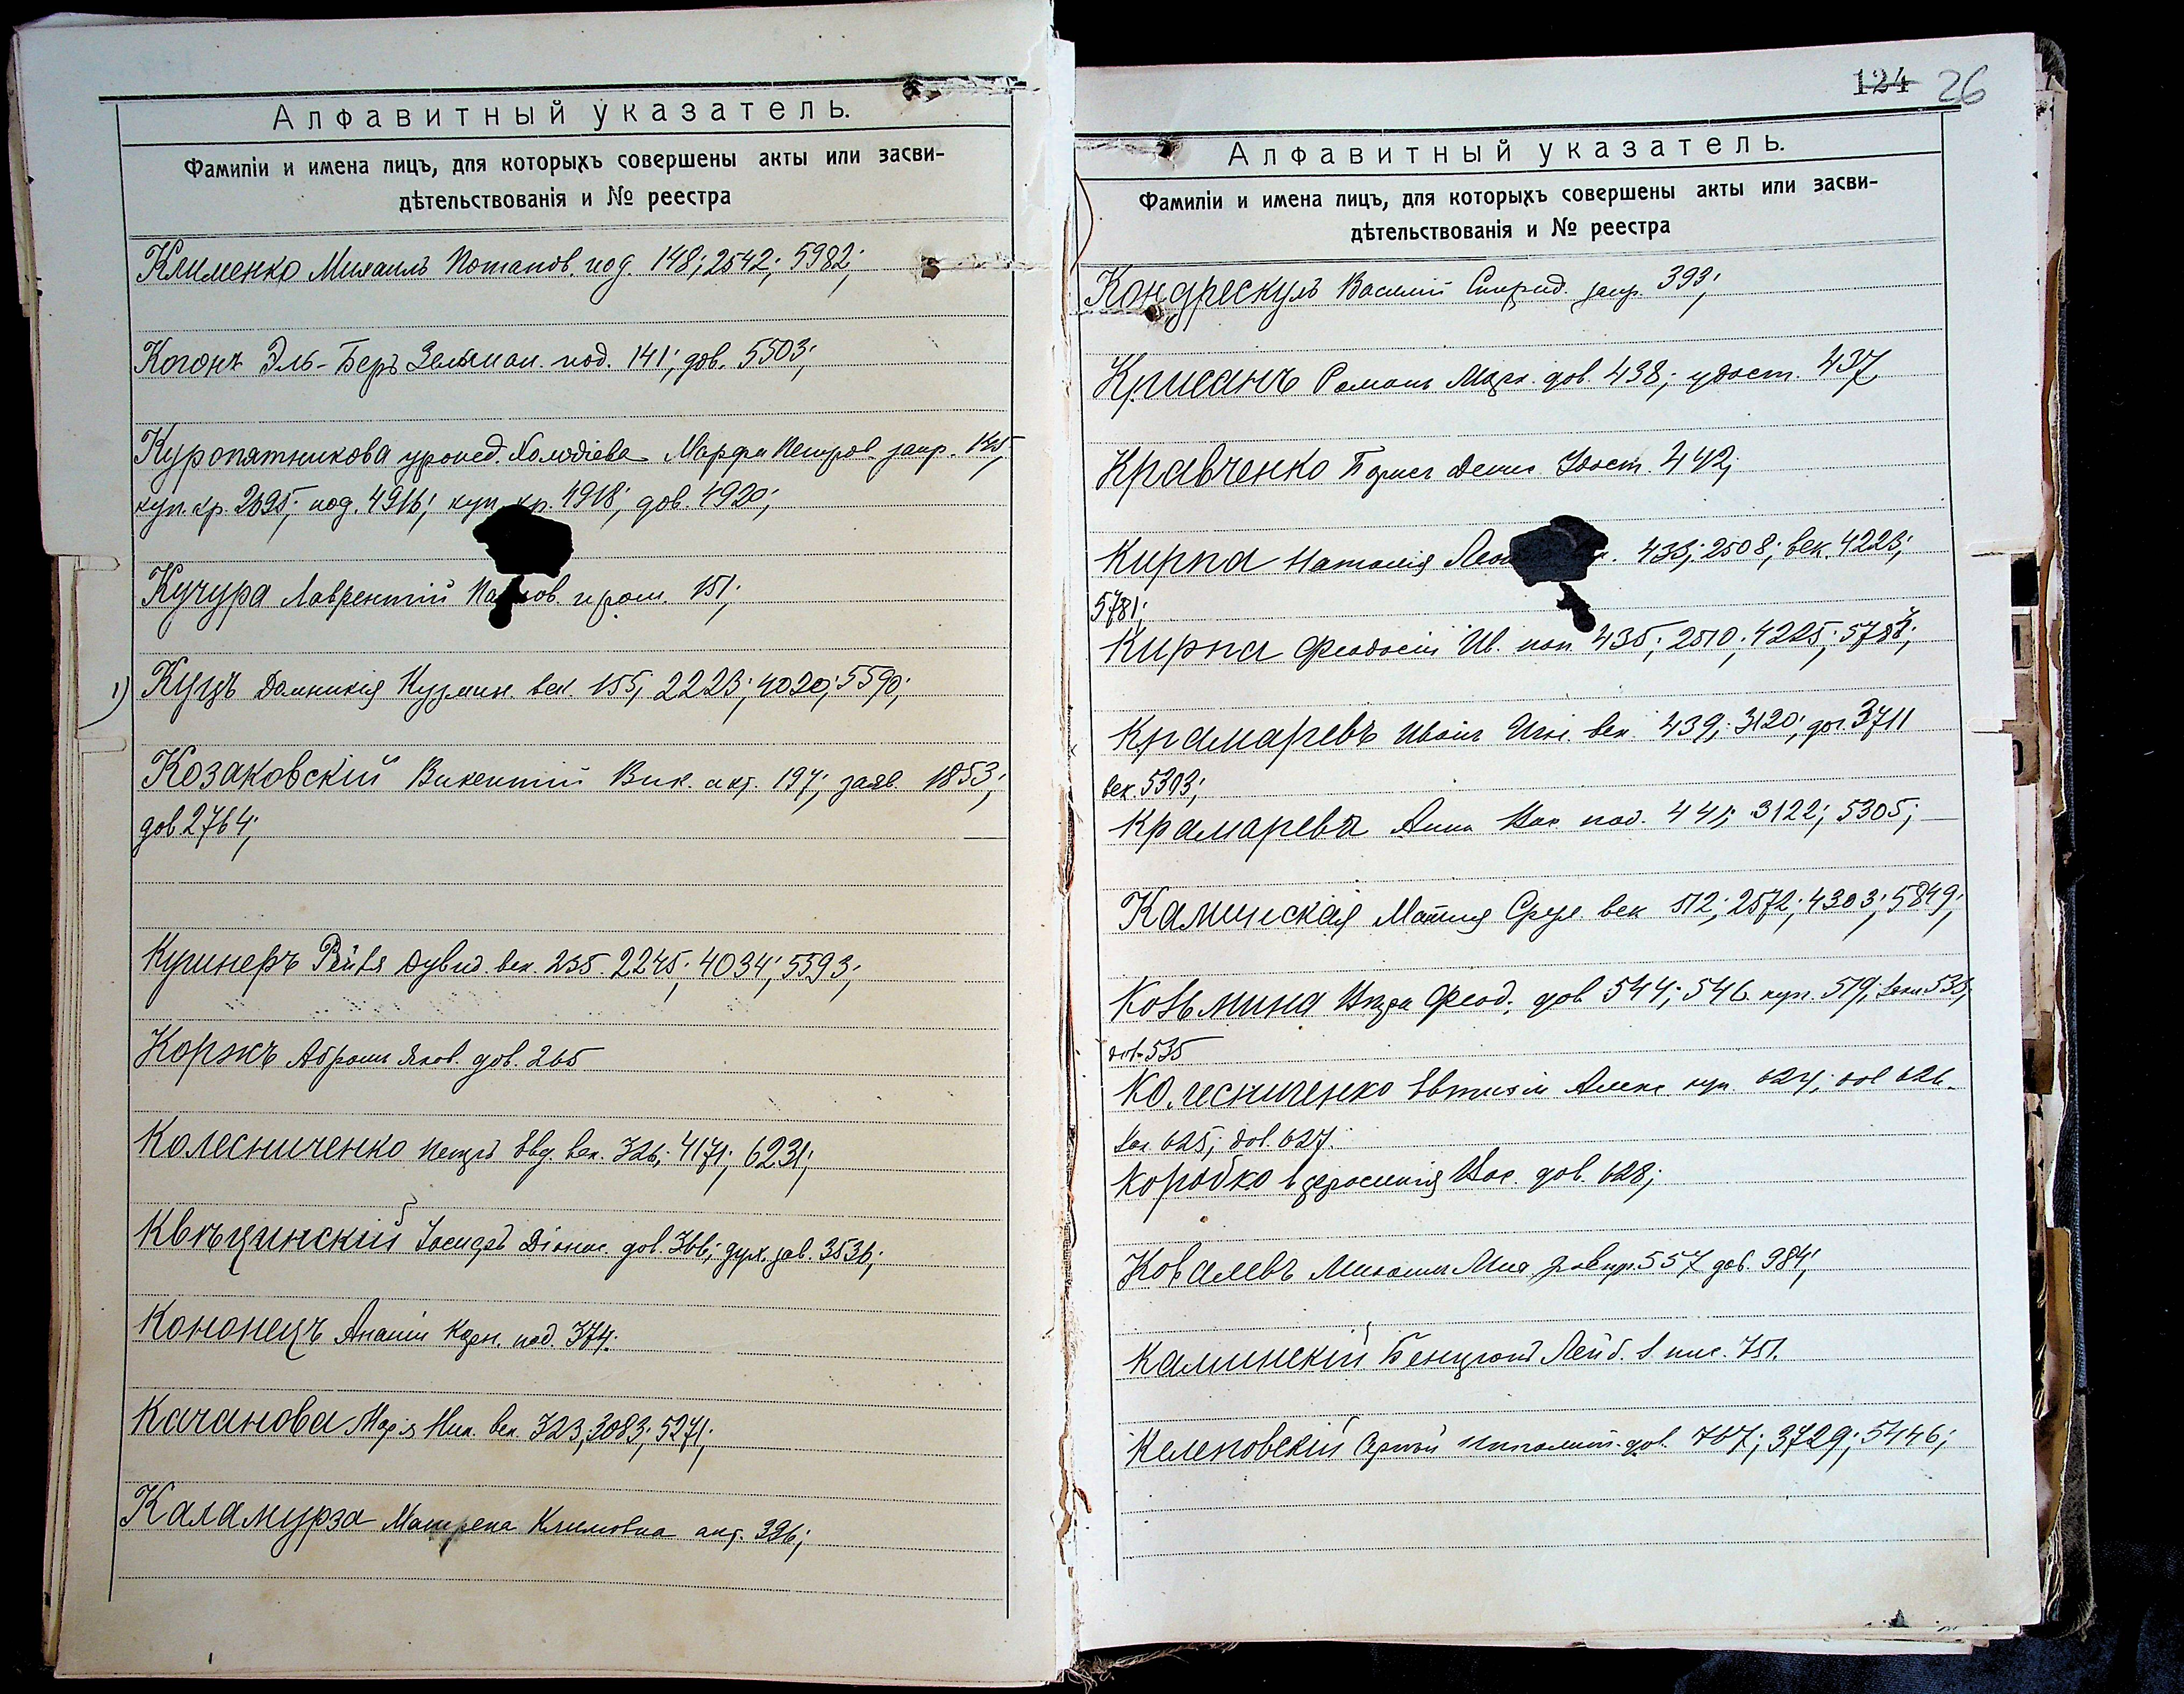 Алфавитный указатель.
Фамиліи и имена лицъ, для которыхъ совершены акты или засви-
дѣтельствованія и № реестра
Клименко Михаилъ Потапов. под. 148; 2542; 5982;
Когонъ Эль-Беръ Зельман. под. 141; дов. 5503;
Куропятникова урожд. Марфа Петров. запр. 145;
куп. кр. 2695; под. 4916; куп. кр. 4918; дов. 4920;
Кучура Лаврентій 151;
1) Куцъ Домникія Кузмин. век. 155; 2223; 4020; 5590;
Козаковскій Викентій Вик. акт. 197; заяв. 1853;
дов 2764;
Кушнеръ Рейзя Дувид. век. 235. 2245; 4034; 5593;
Коржъ Абрамъ Яков. дов. 265
Колесниченко Петръ Евд. век. 326; 4171; 6231;
Квѣцинскій Іосифъ Діонис. дов. 366; дух. зав. 3536;
Кононецъ Ананій Корн. под. 374:
Качанова Марія Ник. век. 323; 3083; 5271;
Каламурза Матрена Климовна акт. 396;
124 26
Алфавитный указатель.
Фамиліи и имена лицъ, для которыхъ совершены акты или засви-
дѣтельствованія и № реестра
Кондрескулъ Василій Спирид. запр. 393;
Крисанъ Романъ Марк. дов. 438; удост. 437
Кравченко Борисъ Денис. Удост. 442;
Кирпа Наталія 433; 2508; век. 4223;
5781;
Кирпа Феодосій Ив. поп. 435; 2510; 4225; 5783;
Крамаревъ Иванъ Игн. век. 439; 3120; дог. 3711
век. 5303;
Крамарева Анна под. 441; 3122; 5305;
Каминская Матля Срул. век 512; 2572; 4303; 5849;
Козьмина Феод. дов 544; 546. куп. 519;
дов. 535
Колесниченко Евтихій Алекс. куп. 624; дов 626.
625; дов. 627.
Коробко Ефросинія Вас. дов. 628;
Ковалевъ 557 дов. 984;
Каминскій Бенціонъ Лейб. 751.
Келеповскій Сергѣй Ипполит. дов. 767; 3729; 5446;